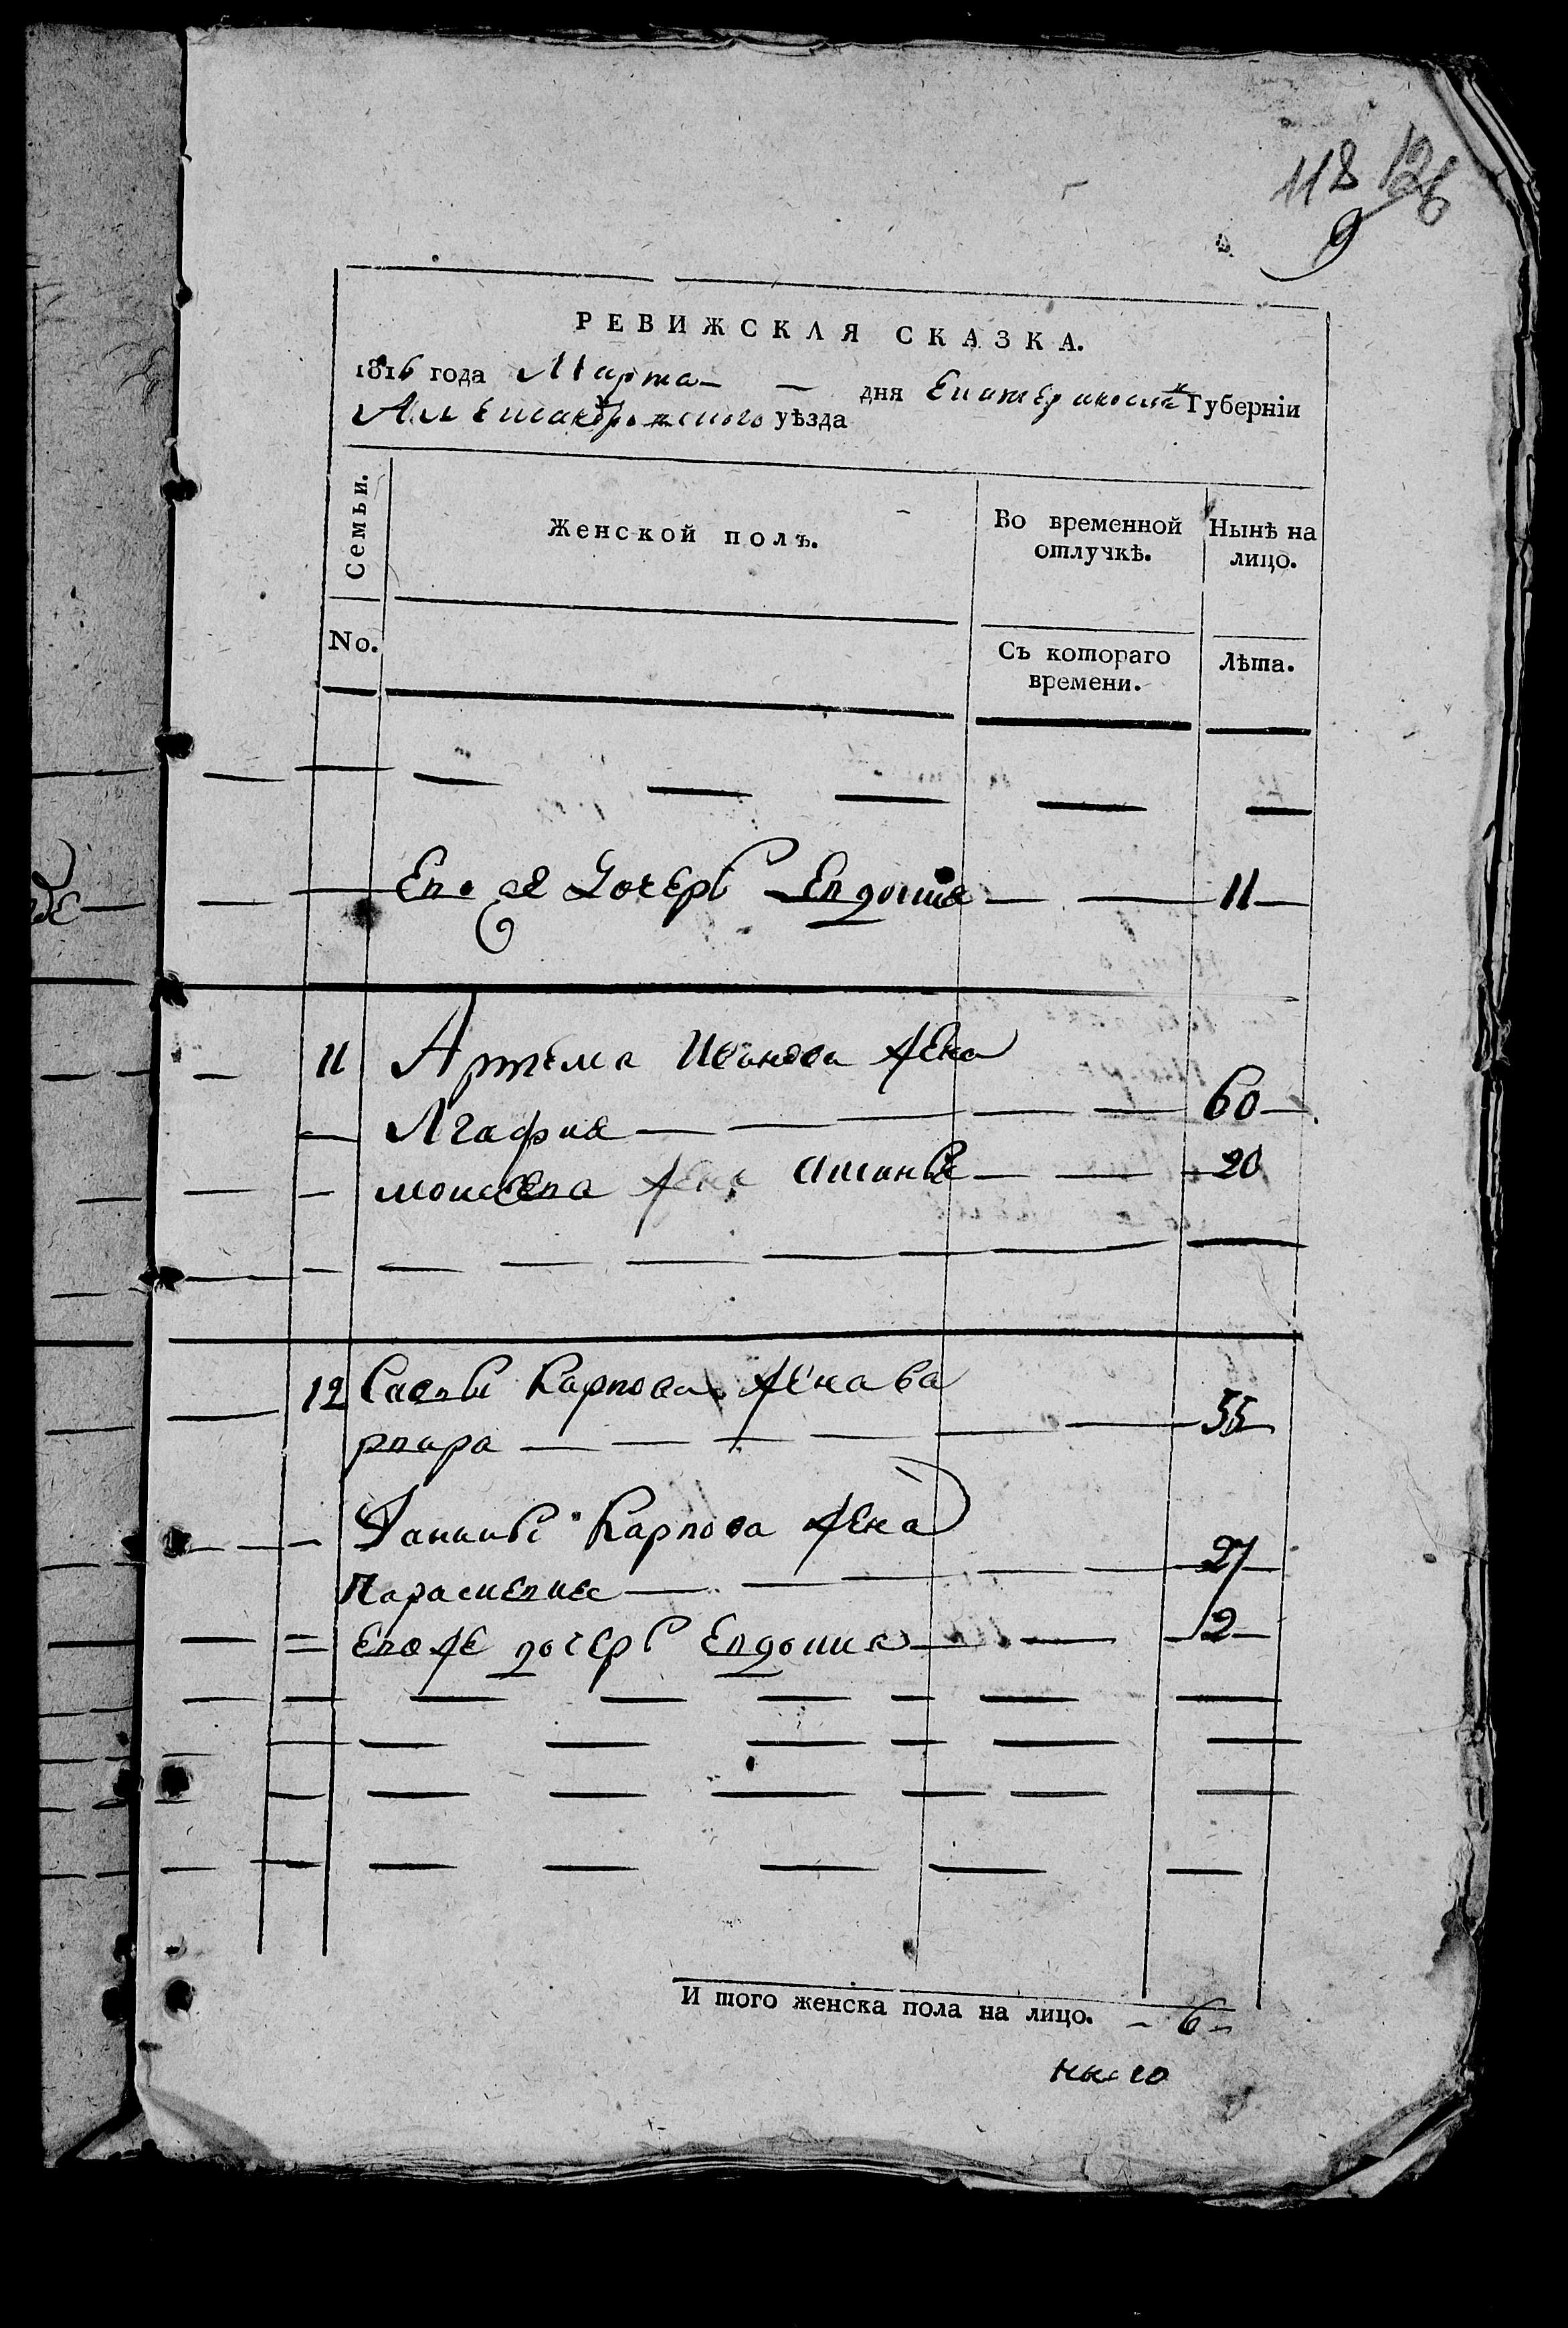 118 126
9
РЕВИЖСКАЯ СКАЗКА.
1816 года Марта дня Екатеринослк Губерніи
Александровского уѣзда
Семьи.
Женской полъ.
Во временной отлучкѣ.
Нынѣ на лицо.
No.
Съ котораго времени.
Лѣта.
Ево же Дочерь Евдокия 11
11 Артема Иванова жена
Агафия 60
жена 20
12 Савы Карпова жена ва
рвара 55
Данилы Карпова жена
Парасковия 27
Ево же дочерь Евдокия 2
И того женска пола на лицо. 6